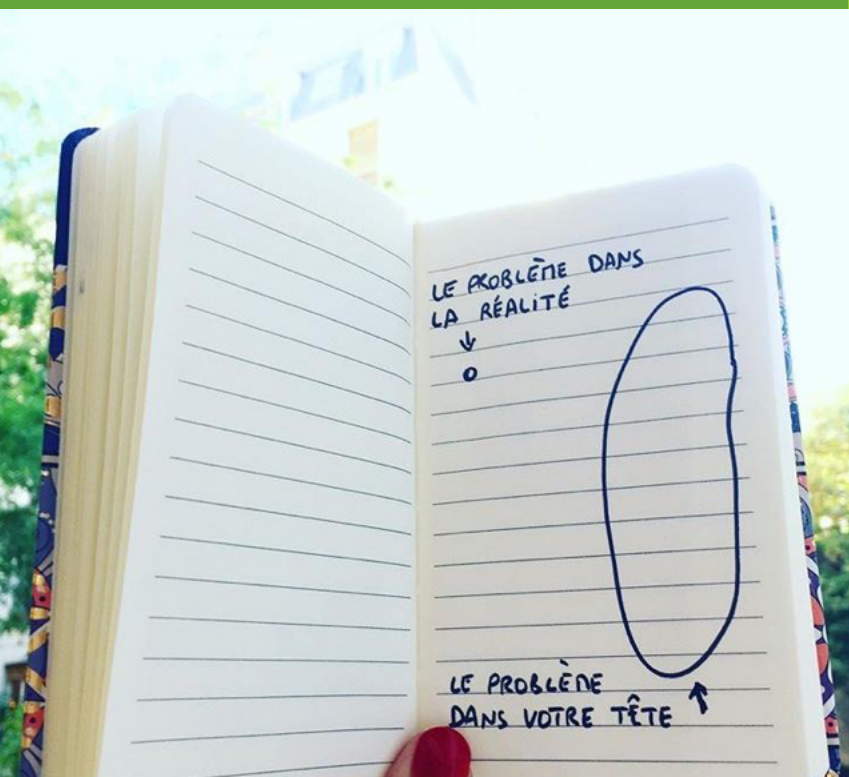 LE PROBLÈME DANS
LA RÉALITÉ
LE PROBLÈME
DANS VOTRE TÊTE